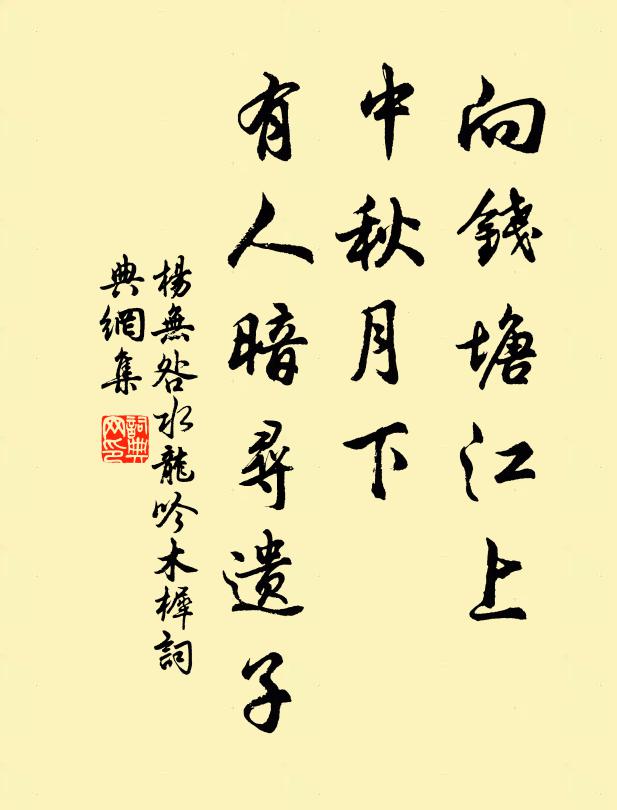 向錢塘江上
中秋月下
有人暗尋遺子
楊無咎水龍吟木樨詞
典網集
詞典
网印